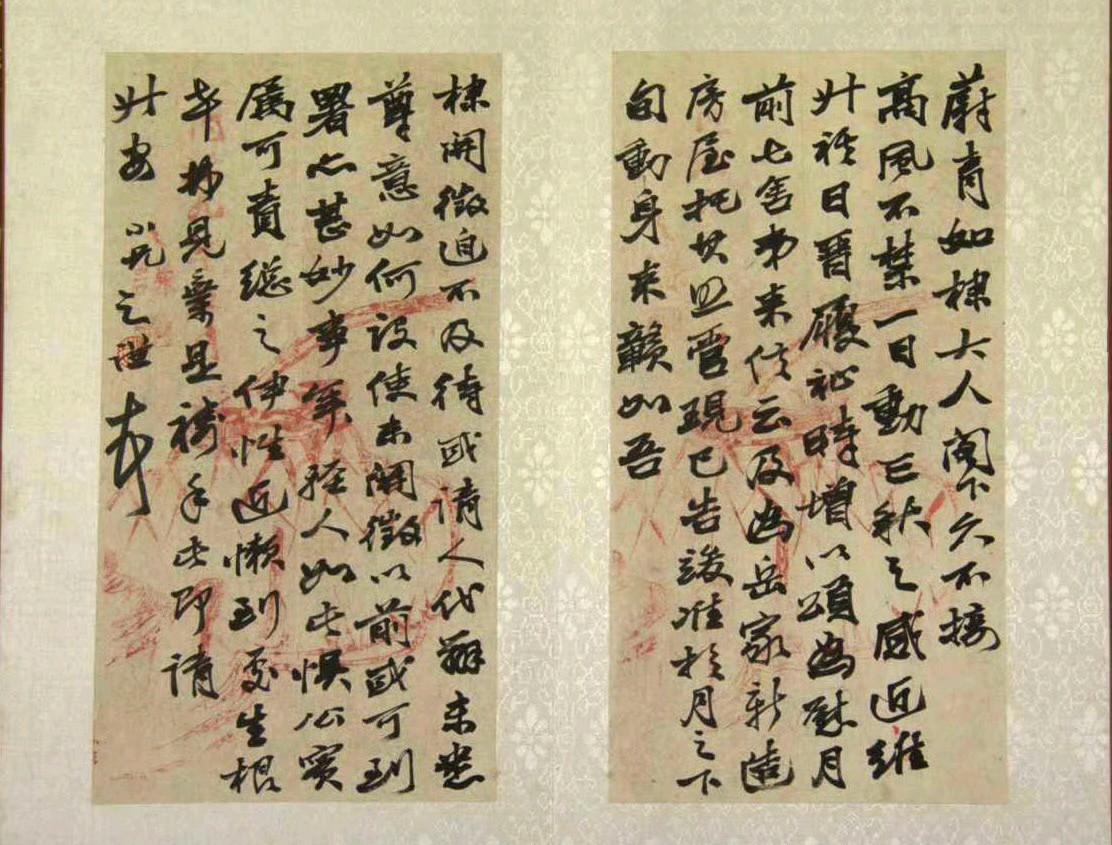 蔚青如棣大人阁下久不接
高風不禁一日動三秋之感近維
升祺日晋履祉時增以頌為慰月
前七舍弟来信云及為岳家新造
房屋托其照管現已告竣准於月之下
旬動身来贛如吾
棣開徵迫不及待或請人代辦未悉
尊意如何設使未開徵以前或可到
署亦甚妙事第輕人如此慎公實
屬可責總之伊性近懶到處生根
幸物見棄是禱手此即請
升安 小兄之世